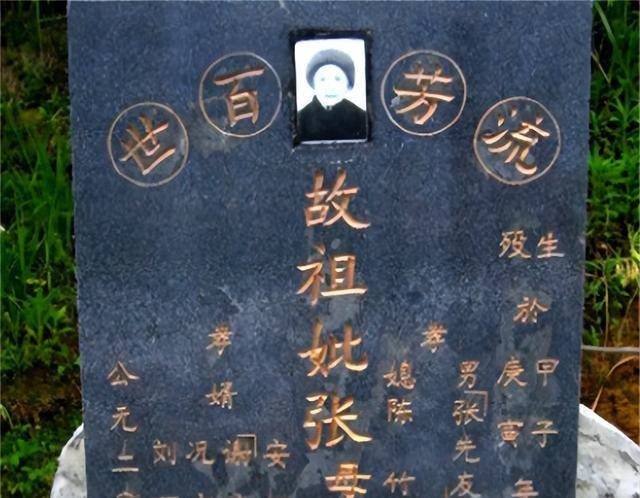 流芳百世
生 甲子年
殁 於 庚寅
孝
男 张先友
媳 陈竹
故祖妣张母
孝婿
安
谢
况
刘
公元二